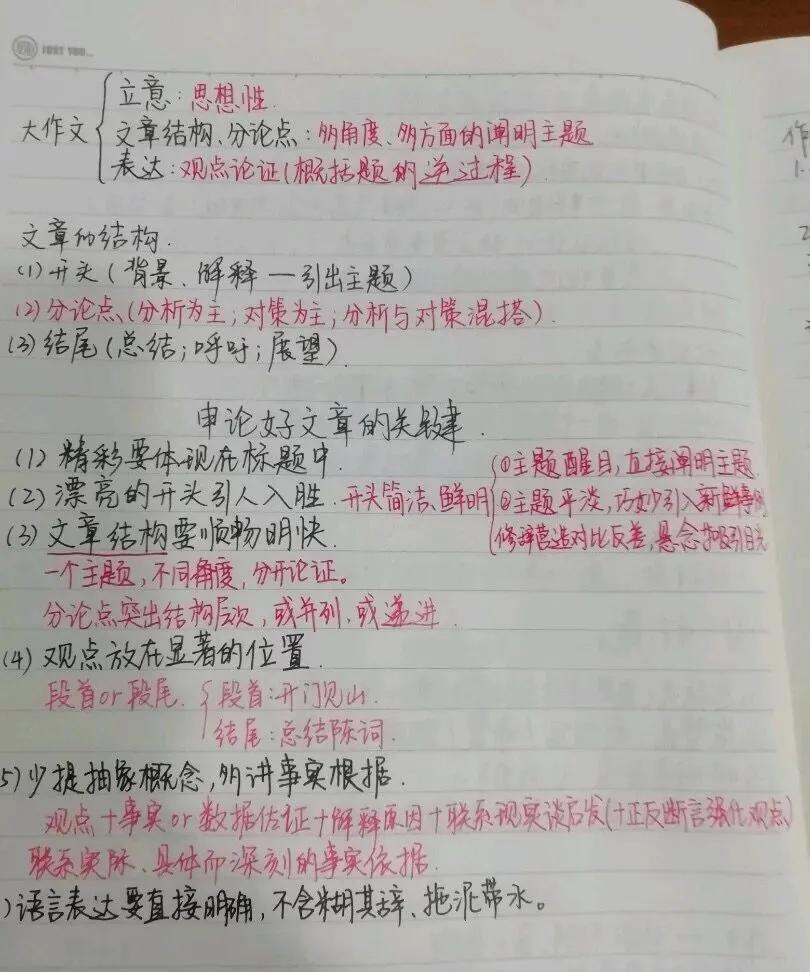 JUST YOU...
大作文
立意：思想性.
文章结构、分论点：多角度、多方面的阐明主题
表达：观点论证(概括题的逆过程)
文章的结构.
(1) 开头(背景、解释—引出主题)
(2) 分论点、(分析为主；对策为主；分析与对策混搭).
(3) 结尾(总结；呼吁；展望).
申论好文章的关键.
(1) 精彩要体现在标题中.
(2) 漂亮的开头引人入胜. 开头简洁、鲜明
①主题醒目，直接阐明主题.
②主题平淡，巧妙引入新鲜事例
修辞营造对比反差，悬念吸引目光
(3) 文章结构要顺畅明快.
一个主题，不同角度，分开论证。
分论点突出结构层次，或并列，或递进.
(4) 观点放在显著的位置.
段首or段尾.
段首：开门见山.
结尾：总结陈词.
5) 少提抽象概念，多讲事实根据.
观点+事实or数据佐证+解释原因+联系现实谈启发(+正反断言强化观点)
联系实际、具体而深刻的事实依据.
) 语言表达要直接明确，不含糊其辞、拖泥带水。
作
1.
2